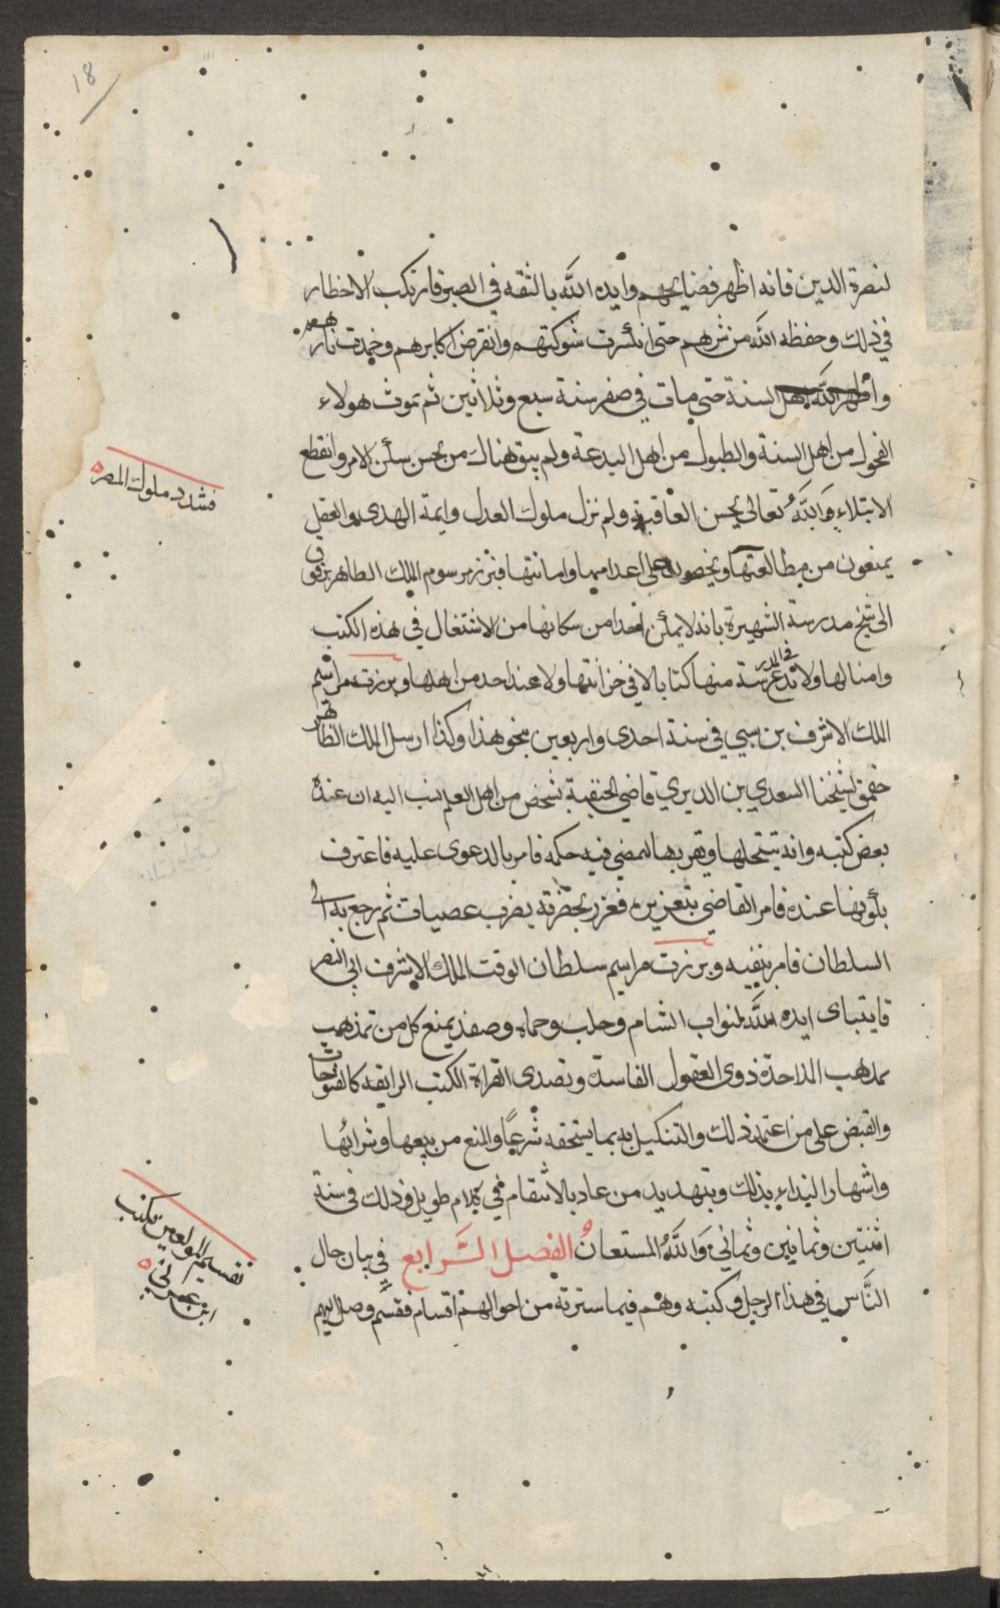 18
لنصرة الدين فانه اظهر فضايحهم وايده الله بالثقه في الصبر فارتكب الاخطار
في ذلك وحفظه الله من شرهم حتى انكسرت شوكتهم وانقرض اكابرهم وخمدت نارهم
واظهر الله اهل السنة حتى مات في صفر سنة سبع وثلاثين ثم بموت هولاء
الفحول من اهل السنة والطبول من اهل البدعة ولم يبق هناك من يحسن سأن الامر وانقطع
فشدد ملوك المصر
الابتلاء والله تعالى يحسن العاقبة ولم نزل ملوك العدل وايمة الهدى والعقل
يمنعون من مطالعتها ويحضون على اعدامها واماتتها فبرز مرسوم الملك الظاهر برقوق
الى شيخ مدرسة الشهيرة بانه لا يمكن احدا من سكانها من الاشتغال في هذه الكتب
وامثالها ولا تدع في المدرسة منها كتابا لا في خزانتها ولا عند احد من اهلها وبرزت مراسم
الملك الاشرف برسبي في سنة احدى واربعين بنحو هذا وكذا ارسل الملك الظاهر
جقمق لشيخنا السعدي بن الديري قاضي الحنفية بشخص من اهل العلم نسب اليه ان عنده
بعض كتبه وانه ينتحلها ويقر بها ليمضي فيه حكمه فامر بالدعوى عليه فاعترف
بكونها عنده فامر القاضي بتعزيره فعزر بحضرته بضرب عصيات ثم رجع به الى
السلطان فامر بنفيه وبرزت مراسيم سلطان الوقت الملك الاشرف ابي النصر
قايتباى ايده الله لنواب الشام وحلب وحماه وصفد بمنع كل من تمذهب
بمذهب الملاحدة ذوى العقول الفاسدة وتصدى لقراة الكتب الرايقه كالفتوحات
والقبض على من اعتمد ذلك والتنكيل به بما يستحقه شرعا والمنع من بيعها وشرائها
واشهار النداء بذلك وبتهديد من عاد بالانتقام في كلام طويل وذلك في سنة
اثنتين وثمانين وثماني والله المستعان الفصل الرابع في بيان حال
تقسيم المولعين بكتب
ابن عربي
الناس في هذا الرجل وكتبه وهم فيما سترته من احوالهم اقسام فقسم وصل اليهم